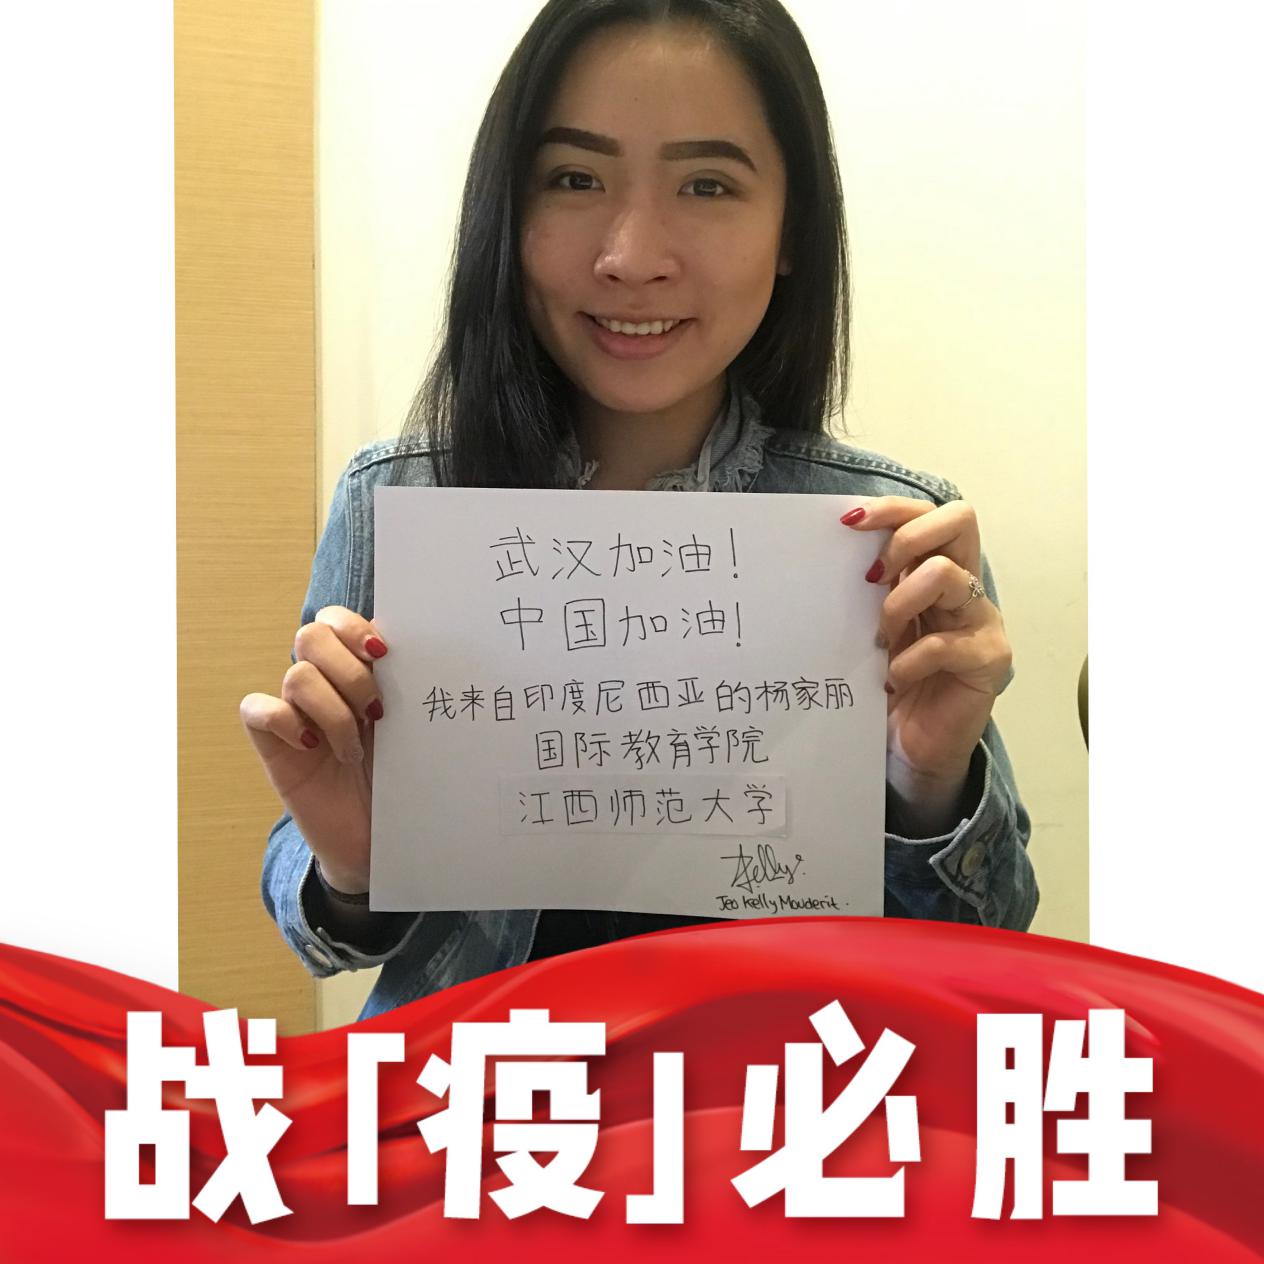 武汉加油！
中国加油！
我来自印度尼西亚的杨家丽
国际教育学院
江西师范大学
Kelly
Jeo Kelly Mouderit.
战「疫」必胜